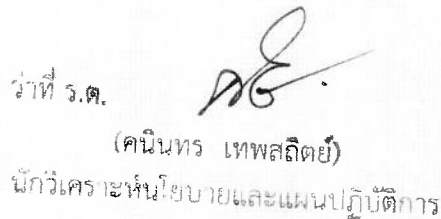 ว่าที่ ร.ต.
(คนินทร เทพสถิตย์)
นักวิเคราะห์นโยบายและแผนปฏิบัติการ